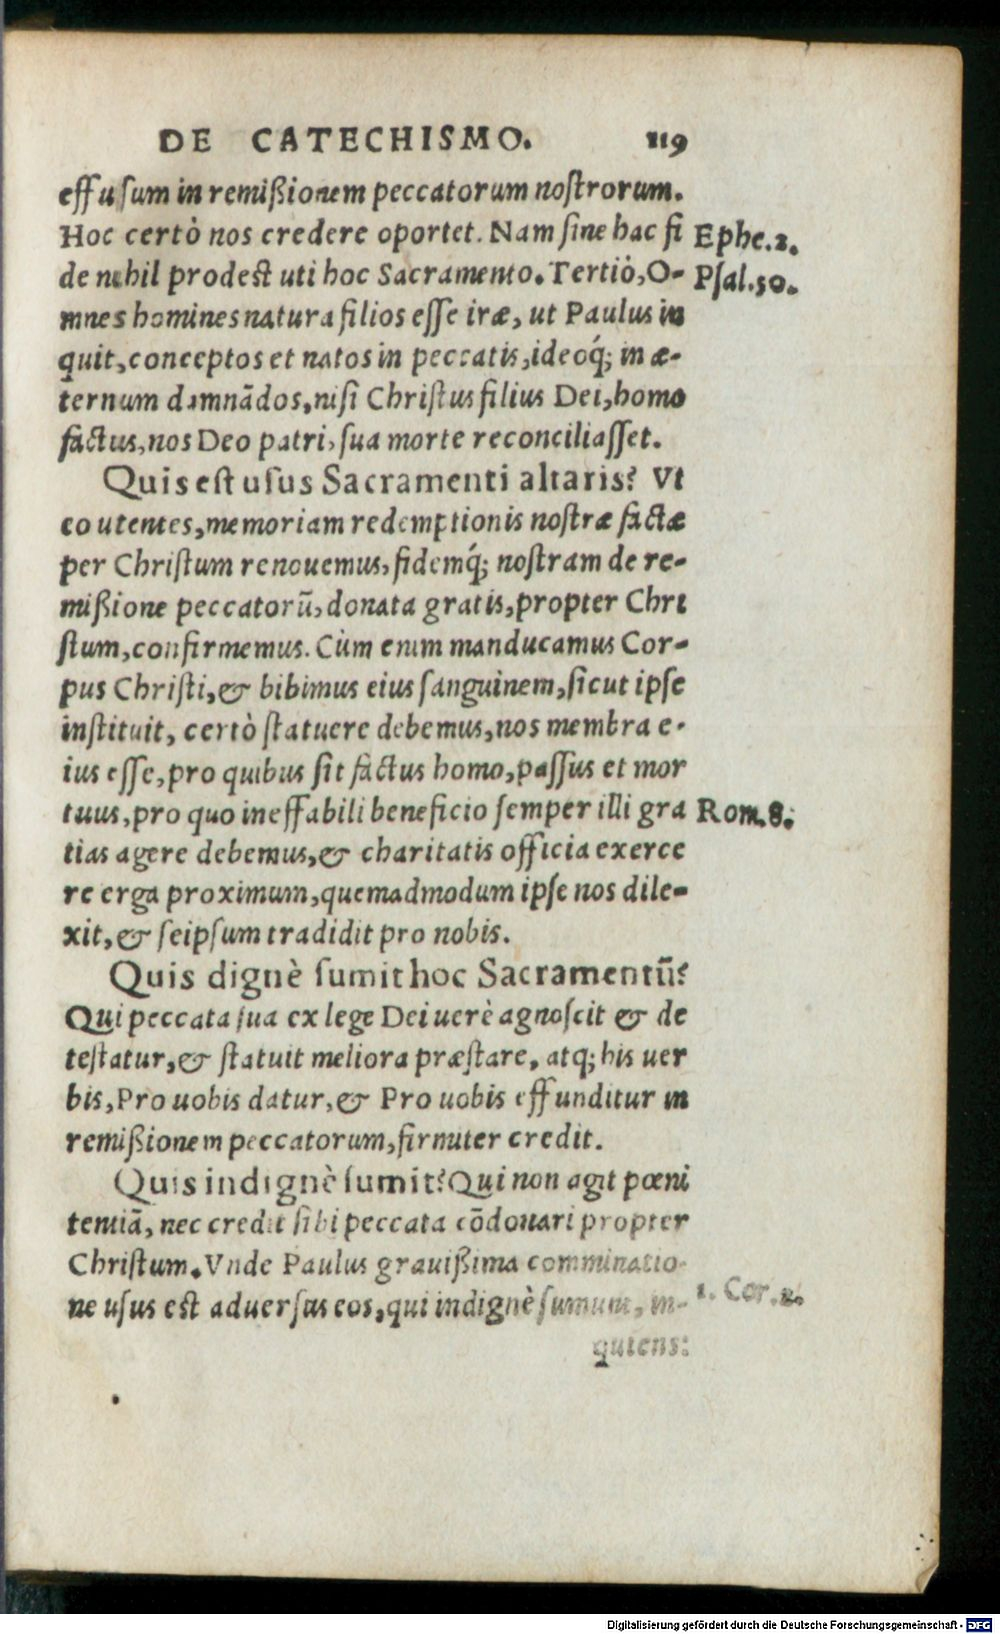 DE CATECHISMO. 119
effusum in remißionem peccatorum nostrorum.
Hoc certò nos credere oportet. Nam sine hac fi
Ephe.2.
de nihil prodest uti hoc Sacramento. Tertiò, O-
Psal.50.
mnes homines natura filios esse iræ, ut Paulus in
quit, conceptos et natos in peccatis, ideoq́; in æ-
ternum damnãdos, nisi Christus filius Dei, homo
factus, nos Deo patri, sua morte reconciliasset.
Quis est usus Sacramenti altaris? Vt
eo utentes, memoriam redemptionis nostræ factæ
per Christum renouemus, fidemq́; nostram de re-
mißione peccatorũ, donata gratis, propter Chri
stum, confirmemus. Cùm enim manducamus Cor-
pus Christi, & bibimus eius sanguinem, sicut ipse
instituit, certò statuere debemus, nos membra e-
ius esse, pro quibus sit factus homo, passus et mor
tuus, pro quo ineffabili beneficio semper illi gra
Rom.8.
tias agere debemus, & charitatis officia exerce
re erga proximum, quemadmodum ipse nos dile-
xit, & seipsum tradidit pro nobis.
Quis dignè sumit hoc Sacramentũ?
Qui peccata sua ex lege Dei uerè agnoscit & de
testatur, & statuit meliora præstare, atq; his uer
bis, Pro uobis datur, & Pro uobis effunditur in
remißionem peccatorum, firmiter credit.
Quis indignè sumit? Qui non agit pœni
tentiã, nec credit sibi peccata cõdonari propter
Christum. Vnde Paulus grauißima comminatio-
ne usus est aduersus eos, qui indignè sumunt, in-
1. Cor.
quiens:
Digitalisierung gefördert durch die Deutsche Forschungsgemeinschaft - DFG